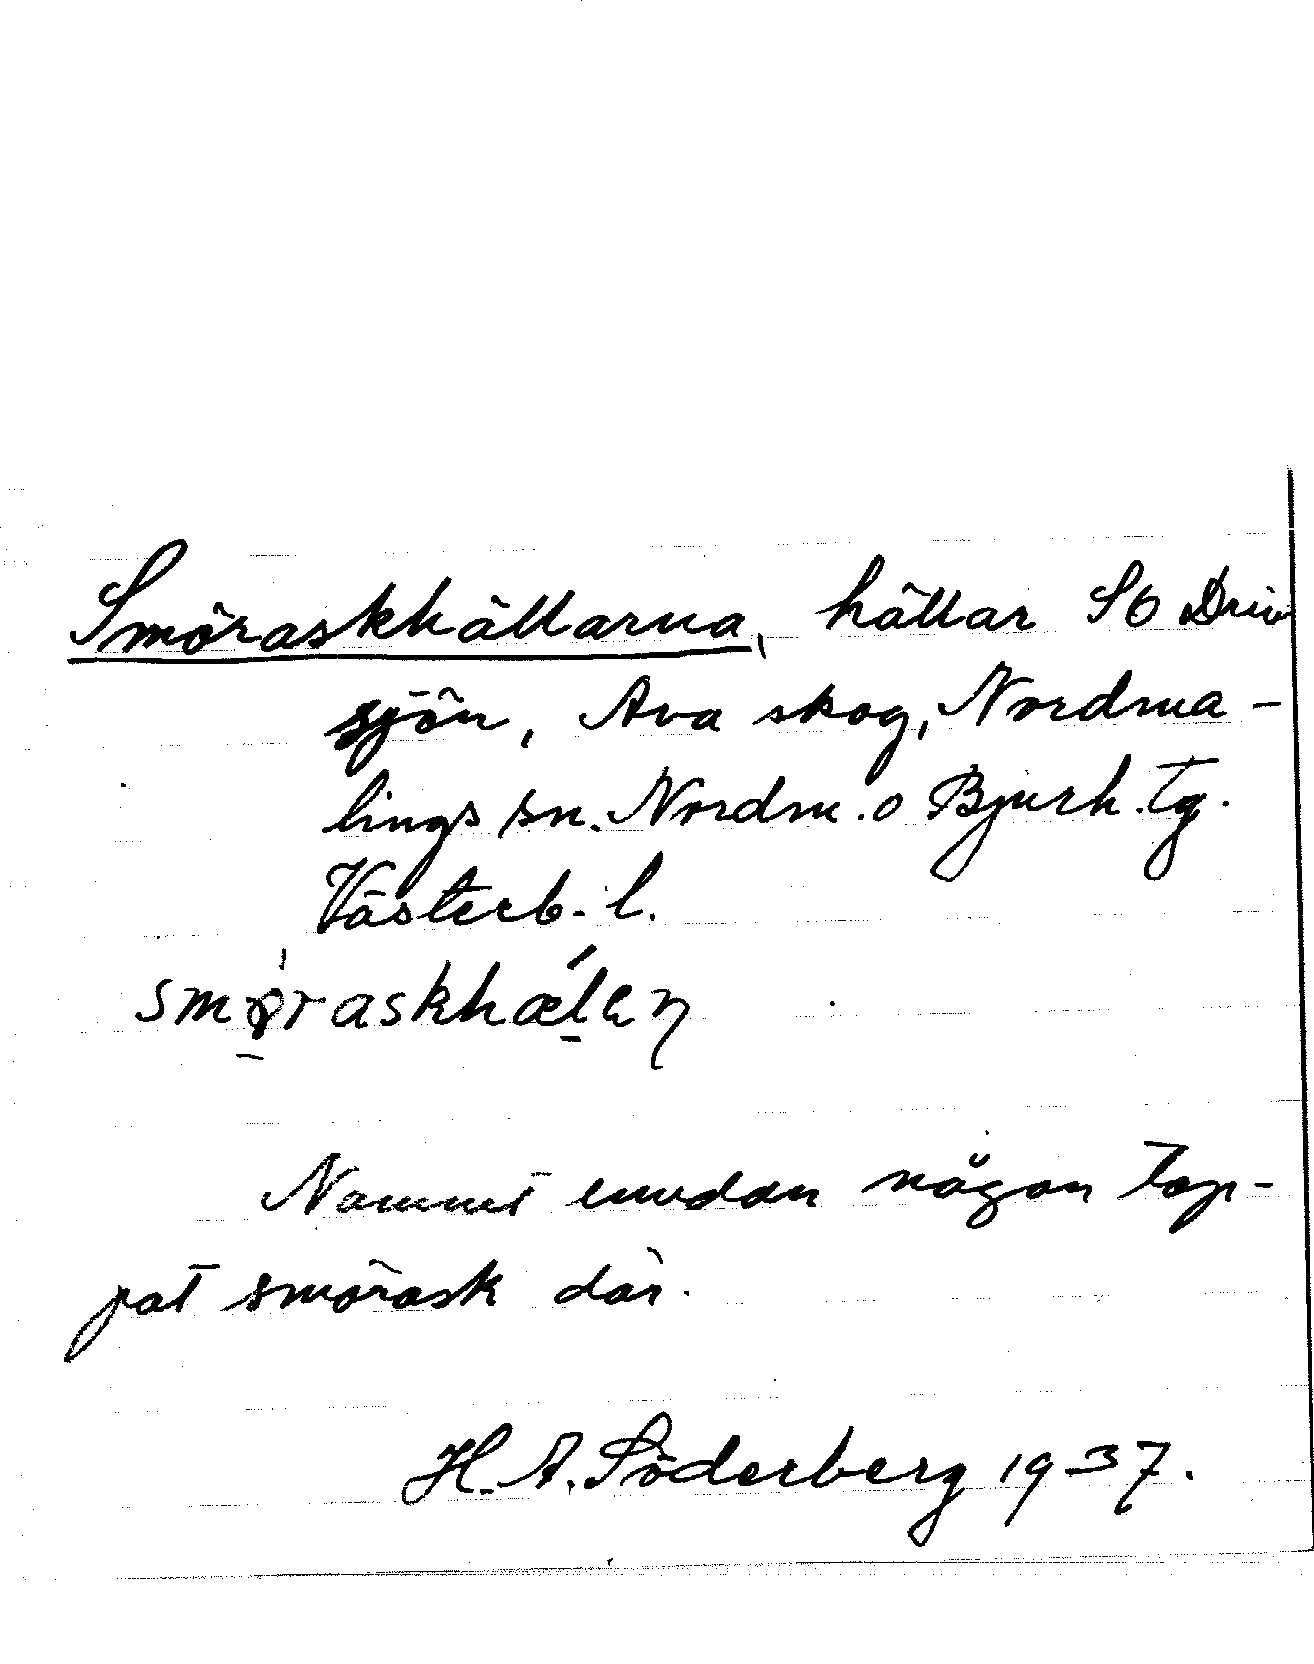 Smöraskhällarna, hällar SO Driv
sjön, Ava skog, Nordma-
lings sn. Nordm. o Bjurh. tg.
Västerb. l.
smøraskhælen
Namnet emedan någon tap-
pat smörask där.
H. A. Söderberg 1937.